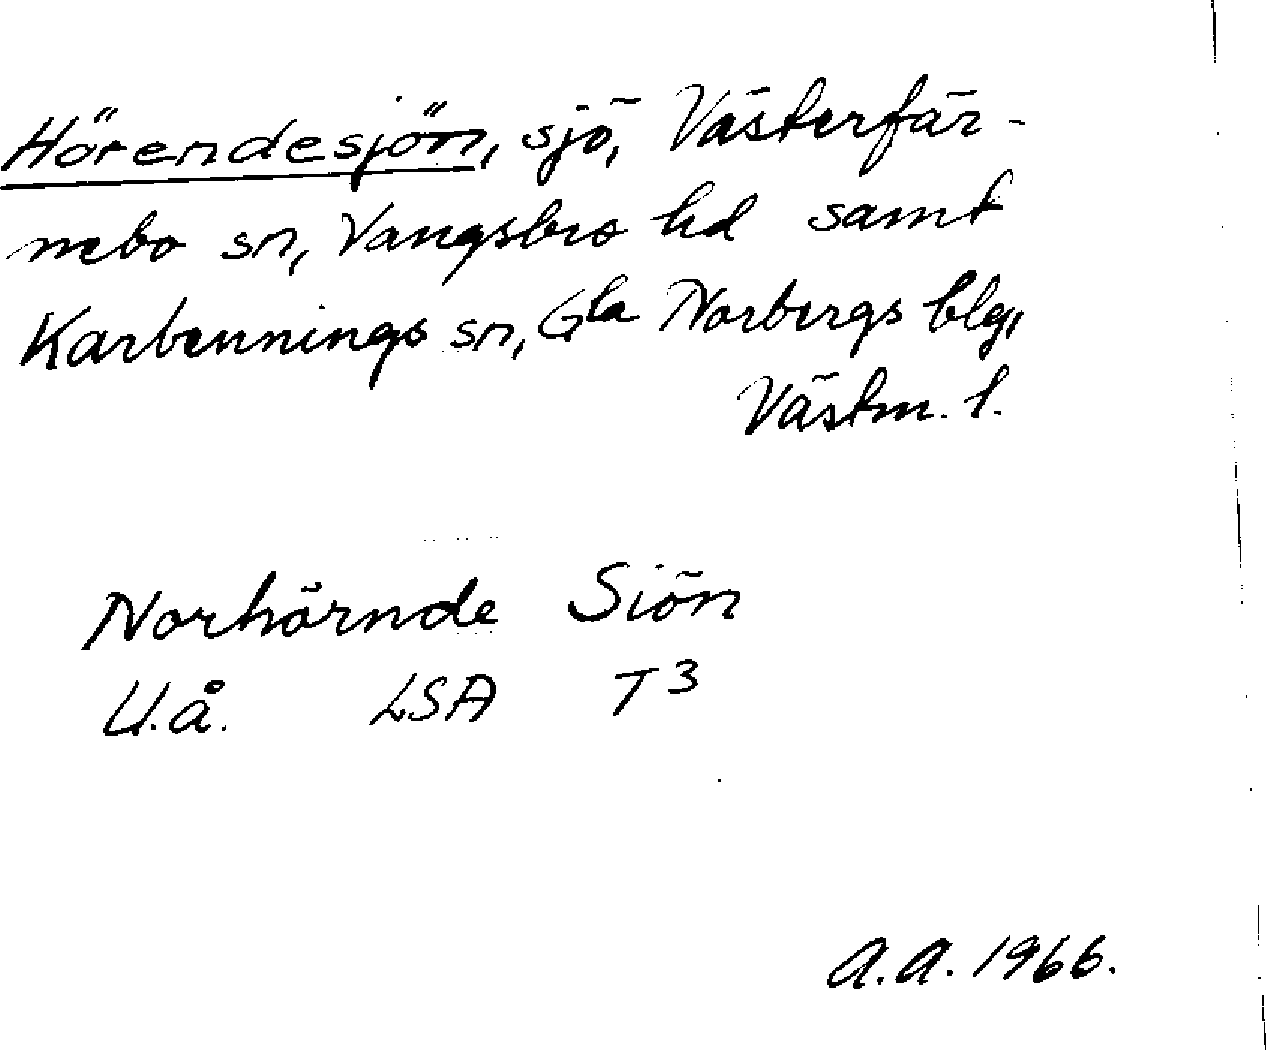 Hörendesjön, sjö, Västerfär-
nebo sn, Vangsbro hd samt
Karbennings sn, Gla Norbergs blg,
Västm. l.
Norhörnde Siön
U.å. LSA T3
A.A. 1966.